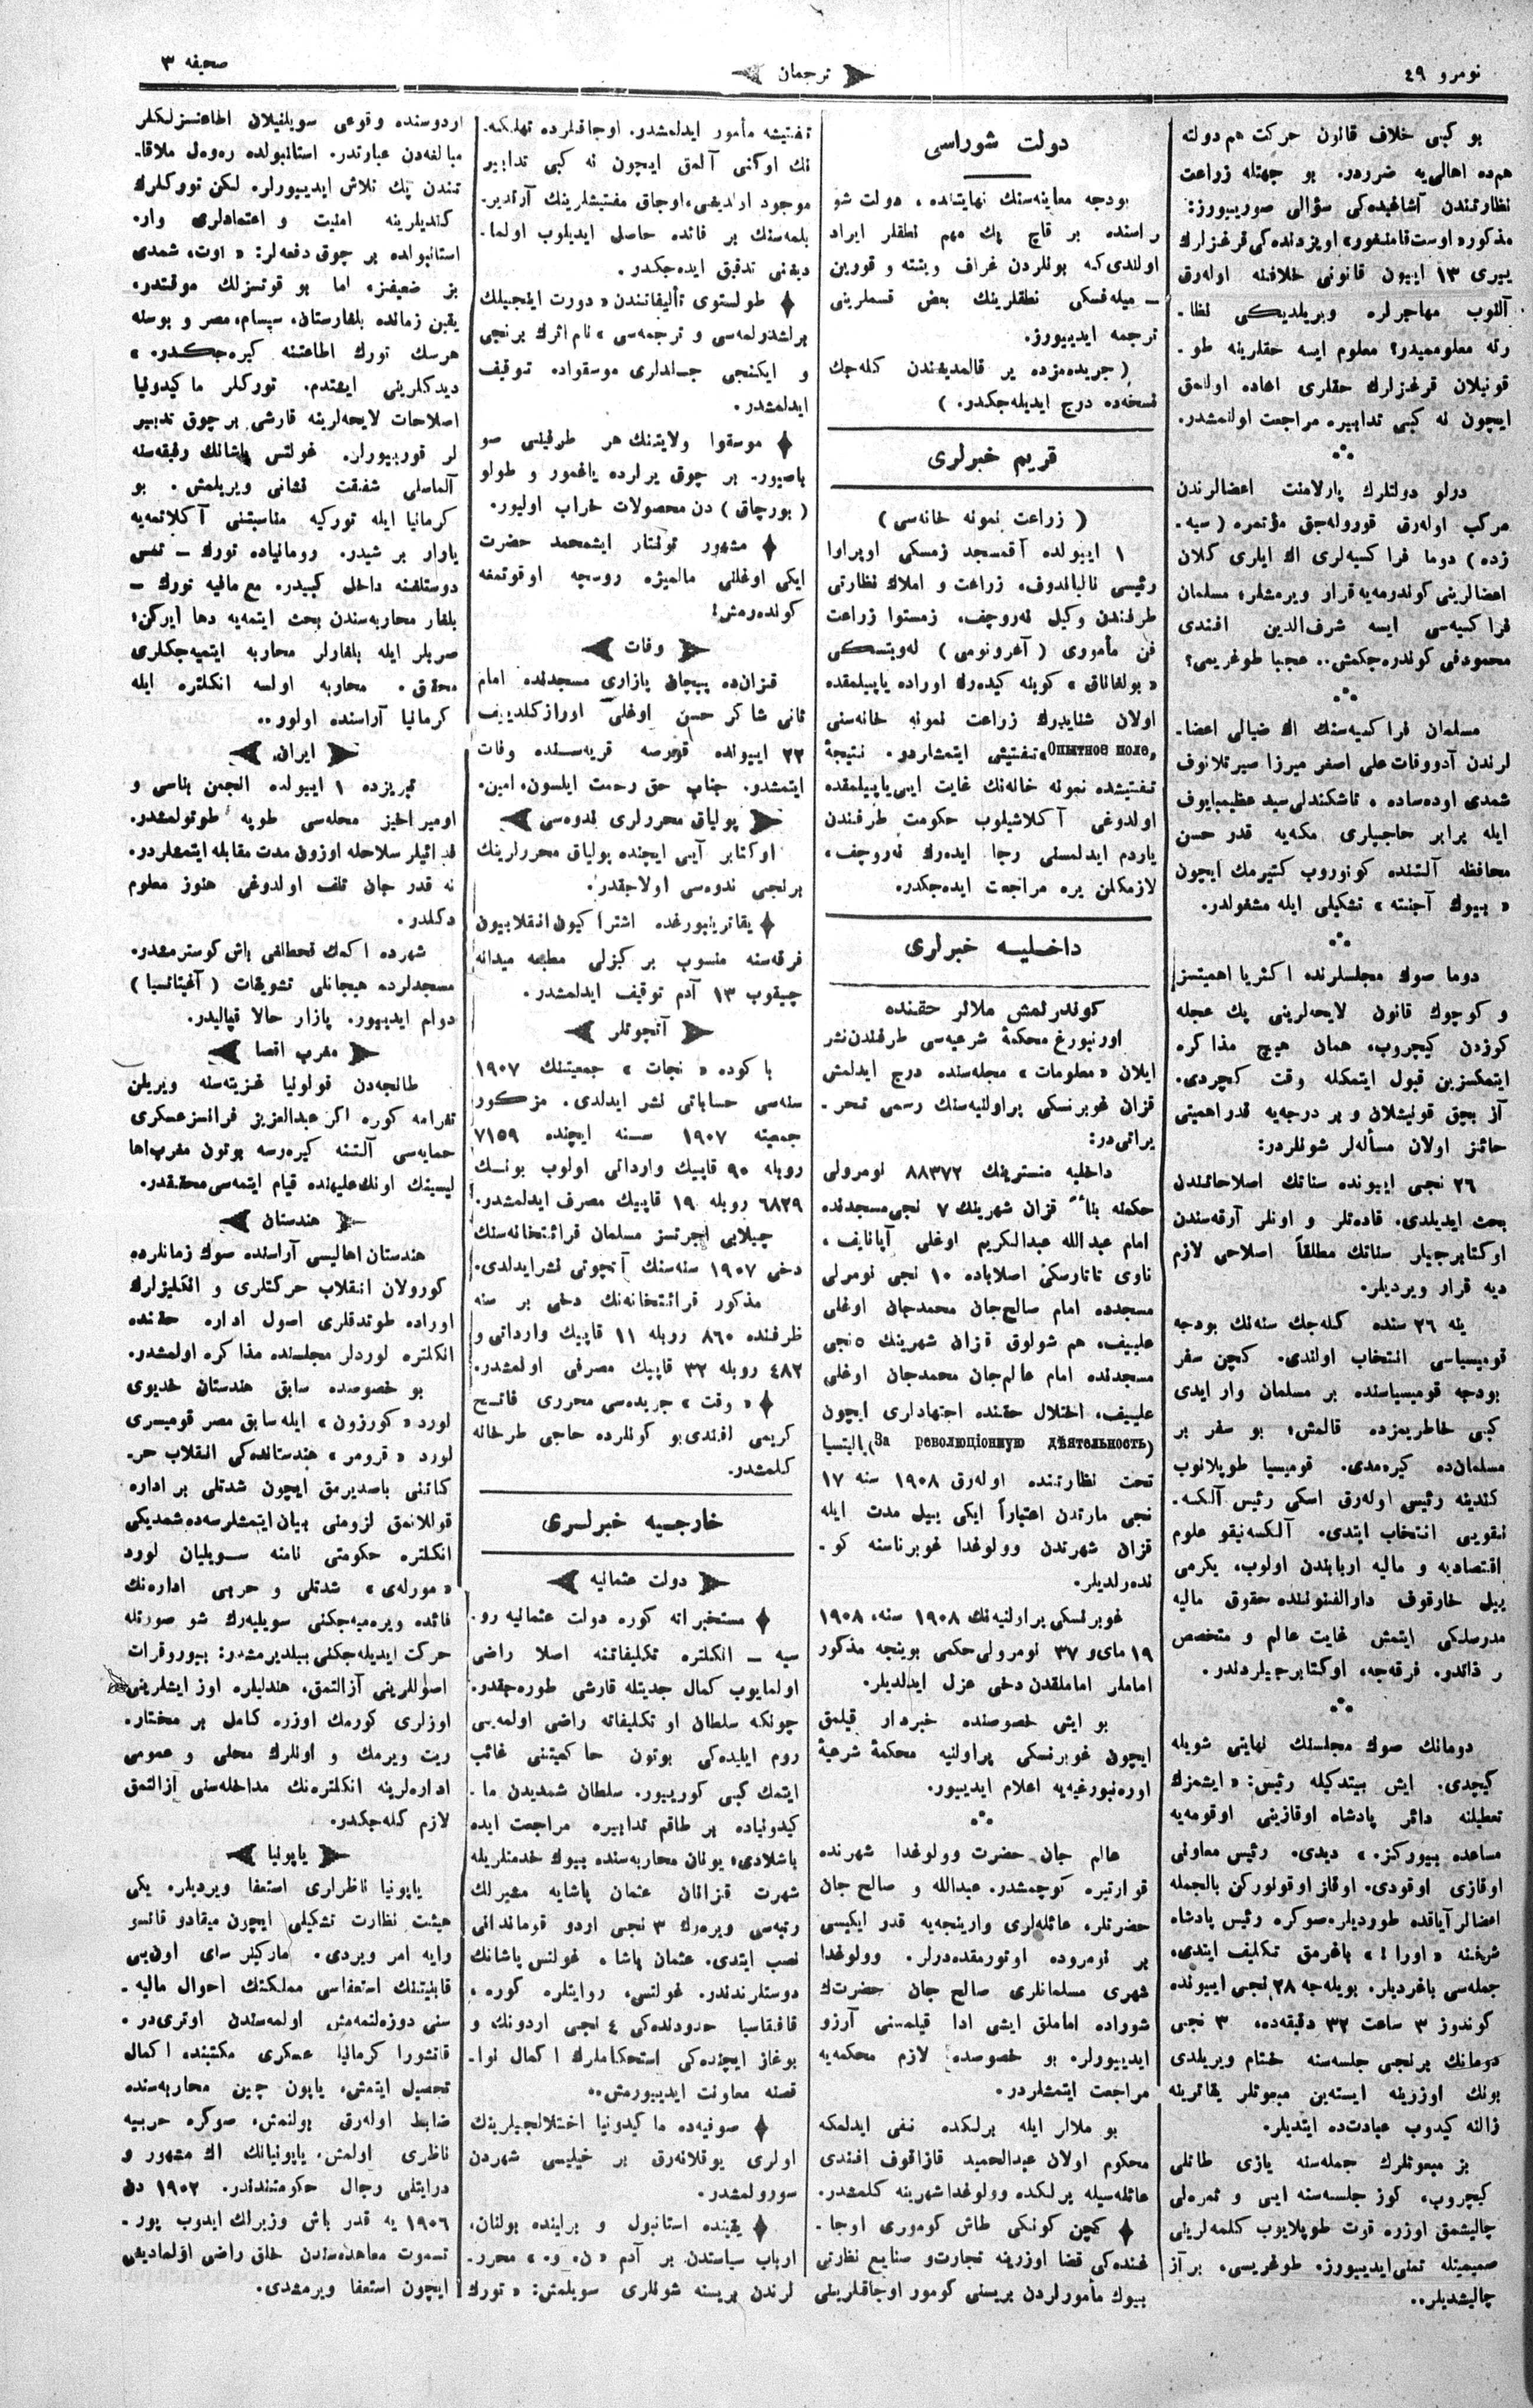 نومرو ٤٩
ترجمان
صحيفه ٣
بو كبى خلاف قانون حركت هم دولته
هم ده اهالى يه ضرردر. بو جهتله زراعت
نظارتندن آشاغيده كى سؤالى صورييورز:
يبرى ١٣ اييون قانونى خلافنه اوله رق
آلنوب مهاجرلره ويريلديكى نظا-
رته معلوم ميدر؟ معلوم ايسه حقلرينه طو-
قونيلان قرغزلرك حقلرى اعاده اولنمق
ايچون نه كبى تدابيره مراجعت اولنمشدر.
درلو دولتلرك پارلامنت اعضالرندن
مركب اوله رق قوروله جق مؤتمره (سيه-
زده) دوما فراكسيه لرى اك ايلرى كلان
اعضالرينى كوندرمه يه قرار ويرمشلر؛ مسلمان
فراكسيه سى ايسه شرف الدين افندى
محمودفى كوندره جكمش.. عجبا طوغريمى؟
مسلمان فراكسيه سنك اك ضيالى اعضا-
لرندن آدووقات على اصغر ميرزا صيرتلانوف
شمدى اوده ساده، تاشكندلى سيد عظيمبايوف
ايله برابر حاجيلرى مكه يه قدر حسن
محافظه آلتنده كوتوروب كتيرمك ايچون
« بيوك آجنته » تشكيلى ايله مشغولدر.
دوما صوك مجلسلرنده اكثريا اهميتسز
و كوچوك قانون لايحه لرينى پك عجله
كوزدن كيچروب، همان هيچ مذاكره
ايتمكسزين قبول ايتمكله وقت كچردى.
آز بچق قونيشلان و بر درجه يه قدر اهميتى
حائز اولان مسأله لر شونلردر:
٢٦ نجى اييونده سناتك اصلاحاتندن
بحث ايديلدى. قاده تلر و اونلر آرقه سندن
اوكتابرجيلر سناتك مطلقاً اصلاحى لازم
ديه قرار ويرديلر.
ينه ٢٦ سنده كله جك سنه نك بودجه
قوميسياسى انتخاب اولندى. كچن سفر
بودجه قوميسياسنده بر مسلمان وار ايدى
كبى خاطريمزده قالمش؛ بو سفر بر
مسلمان ده كيره مدى. قوميسيا طوپلانوب
كندينه رئيس اوله رق اسكى رئيس آلكسه-
نقويى انتخاب ايتدى. آلكسه نيقو علوم
اقتصاديه و ماليه اربابندن اولوب، يكرمى
ييل خارقوف دارالفنوننده حقوق ماليه
مدرسلكى ايتمش غايت عالم و متخصص
ر ذاتدر. فرقه جه، اوكتابرجيلردندر.
دومانك صوك مجلسنك نهايتى شويله
كيچدى. ايش بيتدكيله رئيس: « ايشمزك
تعطيلنه دائر پادشاه اوقازينى اوقومه يه
مساعده بيوركز. » ديدى. رئيس معاونى
اوقازى اوقودى. اوقاز اوقولوركن بالجمله
اعضالر آياقده طورديلر. صوكره رئيس پادشاه
شرفنه « اورا ! » باغرمق تكليف ايتدى،
جمله سى باغرديلر. بويله جه ٢٨ نجى اييونده
كوندوز ٣ ساعت ٣٢ دقيقه ده، ٣ نجى
دومانك برنجى جلسه سنه ختام ويريلدى
بونك اوزرينه ايسته ين مبعوثلر يقاترينه
زالنه كيدوب عبادت ده ايتديلر.
بز مبعوثلرك جمله سنه يازى طاتلى
كيچروب، كوز جلسه سنه ايى و ثمره لى
چاليشمق اوزره قوت طوپلايوب كلمه لرينى
صميميتله تمنى ايدييورز. طوغريسى، بر آز
چاليشديلر..
دولت شوراسى
بودجه معاينه سنك نهايتنده، دولت شو
راسنده بر قاچ پك مهم نطقلر ايراد
اولندى كه بونلردن غراف ويتته و قوربن
ترجمه ايدييورز.
( جريده مزده ير قالمديغندن كله جك
نسخه ده درج ايديله جكدر. )
قريم خبرلرى
( زراعت نمونه خانه سى )
١ اييولده آقمسجد زمسكى اوپراوا
رئيسى نالباندوف، زراعت و املاك نظارتى
طرفندن وكيل نه روچف، زمستوا زراعت
فن مأمورى ( آغرونومى ) له ويتسكى
« بولغاناق » كوينه كيده رك اوراده ياپيلمقده
اولان شنايدرك زراعت نمونه خانه سنى
«Опытное поле» تفتيش ايتمشلردر. نتيجهٔ
تفتيشده نمونه خانه نك غايت ايى ياپيلمقده
اولدوغى آكلاشيلوب حكومت طرفندن
ياردم ايدلمسنى رجا ايده رك نه روچف،
لازمكلن يره مراجعت ايده جكدر.
داخليه خبرلرى
كوندرلمش ملالر حقنده
اورنبورغ محكمهٔ شرعيه سى طرفندن نشر
ايلان « معلومات » مجله سنده درج ايدلمش
قزان غوبرنسكى پراولنيه سنك رسمى تحر-
يراتى در:
داخليه منسترينك ٨٨٣٧٢ نومرولى
حكمنه بناءً قزان شهرينك ٧ نجى مسجدنده
امام عبدالله عبدالكريم اوغلى آپانايف،
ناوى تاتارسكى اصلاباده ١٠ نجى نومرلى
مسجدده امام صالح جان محمدجان اوغلى
علييف، هم شولوق قزان شهرينك ٥ نجى
مسجدنده امام عالم جان محمدجان اوغلى
علييف، اختلال حقنده اجتهادلرى ايچون
(За революціонную дѣятельность) پاليتسيا
تحت نظارتنده اوله رق ١٩٠٨ سنه ١٧
نجى مارتدن اعتباراً ايكى ييل مدت ايله
قزان شهرندن وولوغدا غوبرناسنه كو-
ندرلديلر.
غوبرنسكى پراولنيه نك ١٩٠٨ سنه، ١٩٠٨
١٩ ماى و ٣٧ نومرولى حكمى بوينجه مذكور
اماملر اماملقدن دخى عزل ايدلديلر.
بو ايش خصوصنده خبردار قيلمق
ايچون غوبرنسكى پراولنيه محكمهٔ شرعيهٔ
اوره نبورغيه يه اعلام ايدييور.
عالم جان حضرت وولوغدا شهرنده
قوارتيره كوچمشدر. عبدالله و صالح جان
حضرتلر، عائله لرى وارينجه يه قدر ايكيسى
بر نومروده اوتورمقده درلر. وولوغدا
شهرى مسلمانلرى صالح جان حضرتك
شوراده اماملق ايشى ادا قيلمسنى آرزو
ايدييورلر. بو خصوصده لازم محكمه يه
مراجعت ايتمشلردر.
بو ملالر ايله برلكده نفى ايدلمكه
محكوم اولان عبدالحميد قازاقوف افندى
عائله سيله برلكده وولوغدا شهرينه كلمشدر.
كچن كونكى طاش كومورى اوجا-
غنده كى قضا اوزرينه تجارت و صنايع نظارتى
بيوك مأمورلردن بريسنى كومور اوجاقلرينى
تفتيشه مأمور ايدلمشدر. اوجاقلرده تهلكه-
نك اوكنى آلمق ايچون نه كبى تدابير
موجود اولديغى، اوجاق مفتيشلرينك آرتدير-
يلمه سنك بر فائده حاصل ايديلوب اولما-
ديغنى تدقيق ايده جكدر.
طولستوى تأليفاتندن « دورت اينجيلك
برلشدرلمه سى و ترجمه سى » نام اثرك برنجى
و ايكنجى جلدلرى موسقواده توقيف
ايدلمشدر.
موسقوا ولايتنك هر طرفينى صو
باصيور. بر چوق يرلرده ياغمور و طولو
( بورچاق ) دن محصولات خراب اوليور.
مشهور تونتار ايشمحمد حضرت
ايكى اوغلنى مالميژه روسچه اوقوتمغه
كونده رمش!
وفات
قزان ده پيچان بازارى مسجدنده امام
ثانى شاكر حسن اوغلى اورازكلدييف
٢٢ اييونده قورصه قريه سنده وفات
ايتمشدر. جناب حق رحمت ايلسون، امين.
پولياق محررلرى ندوه سى
اوكتابر آيى ايچنده پولياق محررلرينك
برنجى ندوه سى اولاجقدر.
يقاترينبورغده اشتراكيون انقلابيون
فرقه سنه منسوب بر كيزلى مطبعه ميدانه
چيقوب ١٣ آدم توقيف ايدلمشدر.
آتچوتلر
باكوده « نجات » جمعيتنك ١٩٠٧
سنه سى حساباتى نشر ايدلدى. مزكور
جمعيته ١٩٠٧ سنه ايچنده ٧١٥٩
روبله ٩٠ قاپيك وارداتى اولوب بونك
٦٨٢٩ روبله ١٩ قاپيك مصرف ايدلمشدر.
چيلابى اجرتسز مسلمان قرائتخانه سنك
دخى ١٩٠٧ سنه سنك آتچوتى نشر ايدلدى.
مذكور قرائتخانه نك دخى بر سنه
ظرفنده ٨٦٠ روبله ١١ قاپيك وارداتى و
٤٨٢ روبله ٣٢ قاپيك مصرفى اولمشدر.
« وقت » جريده سى محررى فاتح
كريمى افندى بو كونلرده حاجى طرخانه
كلمشدر.
خارجيه خبرلرى
دولت عثمانيه
مستخبراته كوره دولت عثمانيه رو-
سيه - انكلتره تكليفاتنه اصلا راضى
اولمايوب كمال جديتله قارشى طوره جقدر.
چونكه سلطان او تكليفاته راضى اولمه سى
روم ايليده كى بوتون حاكميتنى غائب
ايتمك كبى كورييور. سلطان شمديدن ما-
كيدونياده بر طاقم تدابيره مراجعت ايده
باشلادى؛ يونان محاربه سنده بيوك خدمتلريله
شهرت قزانان عثمان پاشايه مشيرلك
رتبه سى ويره رك ٣ نجى اردو قوماندانى
نصب ايتدى. عثمان پاشا، غولتس پاشانك
دوستلرندندر. غولتس، روايتلره كوره،
قافقاسيا حدودنده كى ٤ نجى اردونك و
بوغاز ايچنده كى استحكاملرك اكمال نوا-
قصنه معاونت ايدييورمش..
صوفيه ده ماكيدونيا اختلالجيلرينك
اولرى يوقلانه رق بر خيليسى شهردن
سورولمشدر.
يقينده استانبول و برلينده بولنان،
ارباب سياستدن بر آدم « ن. و. » محرر-
لرندن بريسنه شونلرى سويلمش: « تورك
اردوسنده وقوعى سويلنيلان اطاعتسزلكلر
مبالغه دن عبارتدر. استانبولده ره ول ملاقا-
تندن پك تلاش ايدييورلر. لكن توركلرك
كنديلرينه امنيت و اعتمادلرى وار.
استانبولده بر چوق دفعه لر: « اوت، شمدى
بز ضعيفز، اما بو قوتسزلك موقتدر،
يقين زمانده بلغارستان، سيسام، مصر و بوسنه
هرسك تورك اطاعتنه كيره جكدر. »
ديدكلرينى ايشتدم. توركلر ماكيدونيا
اصلاحات لايحه لرينه قارشى بر چوق تدبير
لر قورييورلر. غولتس پاشانك رفيقه سنه
آلماسلى شفقت نشانى ويريلمش. بو
كرمانيا ايله توركيه مناسبتنى آكلاتمه يه
يارار بر شيدر. رومانياده تورك - نمس
دوستلغنه داخل كبيدر. مع مافيه تورك -
بلغار محاربه سندن بحث ايتمه يه دها ايركن؛
صربلر ايله بلغارلر محاربه ايتميه جكلرى
محقق. محاربه اولسه انكلتره ايله
كرمانيا آراسنده اولور..
ايران
تبريزده ١ اييولده انجمن بناسى و
اوميراخيز محله سى طوپه طوتولمشدر.
فدائيلر سلاحله اوزون مدت مقابله ايتمشلردر.
نه قدر جان تلف اولدوغى هنوز معلوم
دكلدر.
شهرده اكمك قحطالغى باش كوسترمشدر.
مسجدلرده هيجانلى تشويقات ( آغيتاتسيا )
دوام ايدييور. بازار حالا قپاليدر.
مغرب اقصا
طانجه دن قولونيا غزيته سنه ويريلن
تلغرامه كوره اكر عبدالعزيز فرانسز عسكرى
حمايه سى آلتنه كيره رسه بوتون مغرب اها
ليسينك اونك عليهنده قيام ايتمه سى محققدر.
هندستان
هندستان اهاليسى آراسنده صوك زمانلرده
كورولان انقلاب حركتلرى و انكليزلرك
اوراده طوتدقلرى اصول اداره حقنده
انكلتره لوردلر مجلسنده مذاكره اولمشدر.
بو خصوصده سابق هندستان خديوى
لورد « كورزون » ايله سابق مصر قوميسرى
لورد « قرومر » هندستانده كى انقلاب حر-
كاتنى باصديرمق ايچون شدتلى بر اداره
قوللانمق لزومنى بيان ايتمشلرسه ده شمديكى
انكلتره حكومتى نامنه سويليان لورد
« مورله ى » شدتلى و حربى اداره نك
فائده ويرميه جكنى سويليه رك شو صورتله
حركت ايديله جكنى بيلديرمشدر: بيوروقرات
اصوللرينى آزالتمق، هندليلره اوز ايشلرينى
اوزلرى كورمك اوزره كامل بر مختار-
يت ويرمك و اونلرك محلى و عمومى
اداره لرينه انكلتره نك مداخله سنى آزالتمق
لازم كله جكدر.
ياپونيا
ياپونيا ناظرلرى استعفا ويرديلر. يكى
هيئت نظارت تشكيلى ايچون ميقادو قاتسو
رايه امر ويردى. ماركيز ساى اون جى
قابنيتنك استعفاسى مملكتك احوال ماليه-
سنى دوزه لتمه مش اولمه سندن اوترى در.
قاتسورا كرمانيا عسكرى مكتبنده اكمال
تحصيل ايتمش، ياپون چين محاربه سنده
ضابط اوله رق بولنمش، صوكره حربيه
ناظرى اولمش، ياپونيانك اك مشهور و
درايتلى رجال حكومتندندر. ١٩٠٢ دن
١٩٠٦ يه قدر باش وزيرلك ايدوب پور-
تسموت معاهده سندن خلق راضى اولماديغى
ايچون استعفا ويرمشدى.